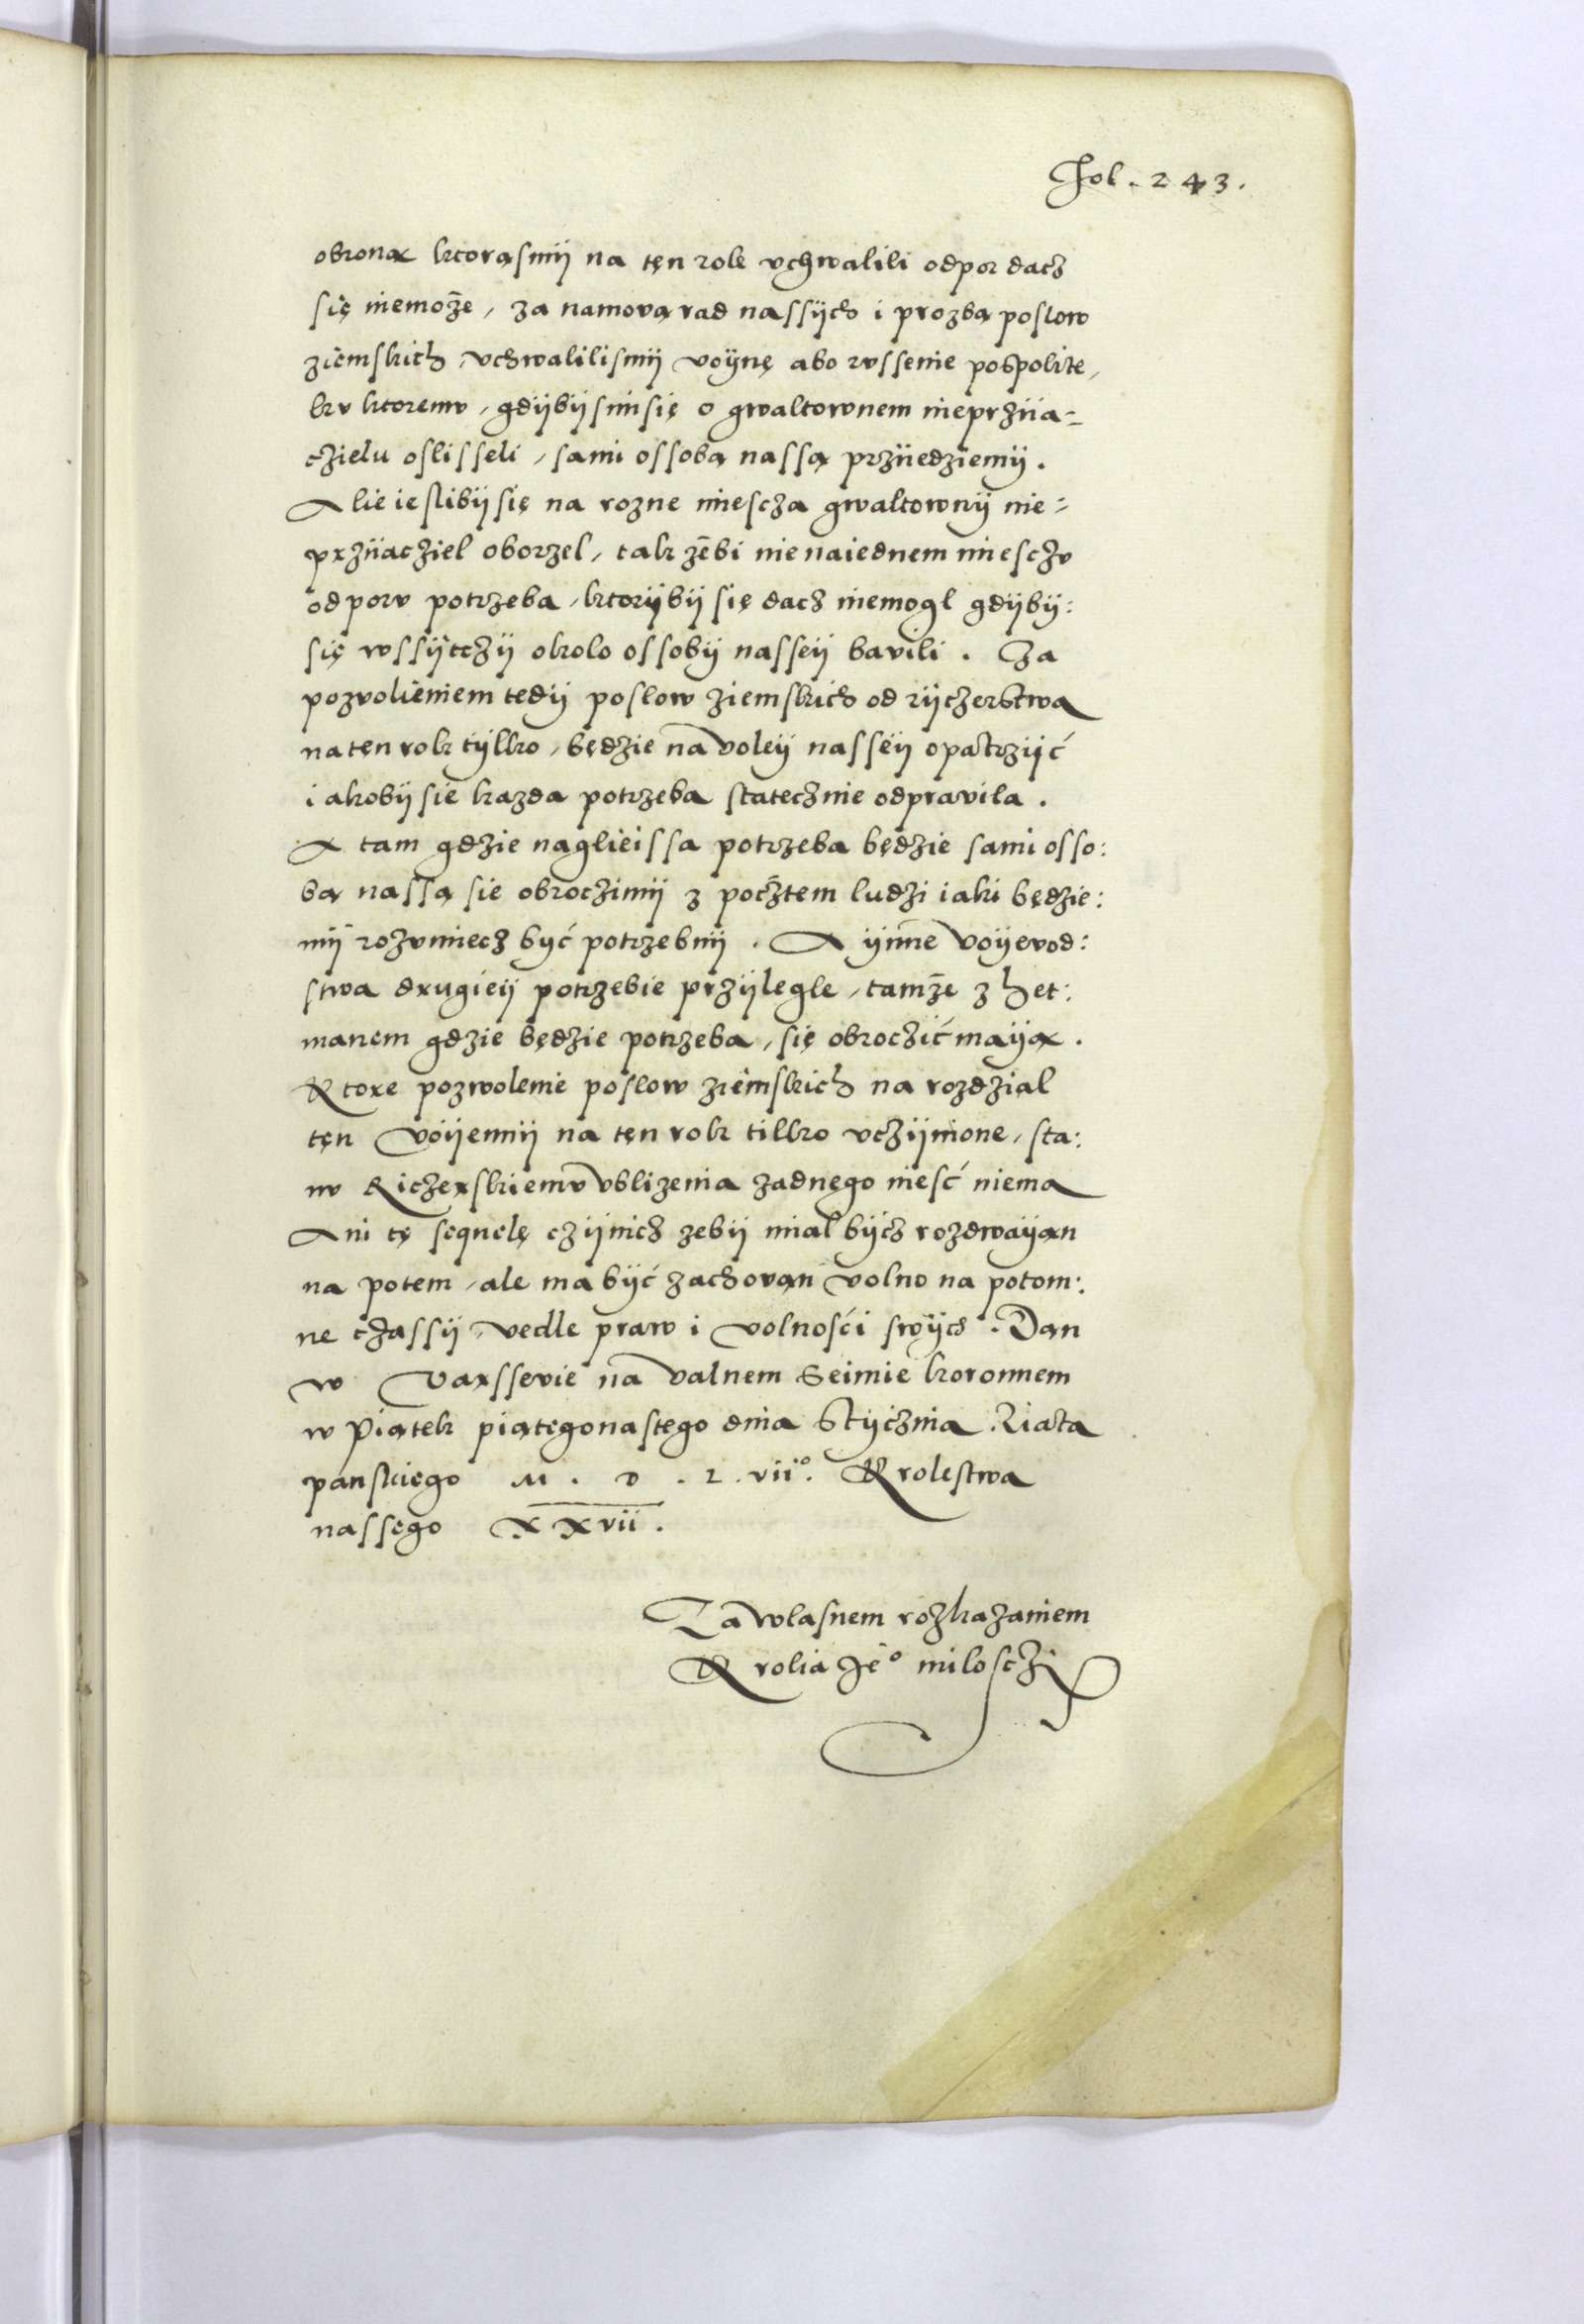 Fol. 243.
obroną ktorąsmÿ na tęn role vchwalili odpor dacz
się niemoże, za namovą rad nassÿch i prozbą poslow
ziemskich, vchwalilismÿ voÿnę abo rvssenie pospolite,
kv ktoremv, gdÿbÿsmisię o gwaltownem nieprziia=
czielu oslisseli, sami ossobą nassą prziiedziemÿ.
Alie ieslibÿ się na rozne miescza gwaltownÿ nie=
prziiacziel oborzel, tak żebi nie naiednem miesczv
odporv potrzeba, ktorÿbÿ się dacz niemogl gdÿbÿ:
się wssÿtczÿ okolo ossobÿ nasseÿ bavili. Za
pozvolieniem tedÿ poslow ziemskich od rÿczerstwa
na tęn rok tÿlko, będzie na voleÿ nasseÿ opatrzÿć
iakobÿ sie kazda potrzeba statecznie odpravila.
A tam gdzie naglieissa potrzeba będzie sami osso:
bą nassą sie obroczimÿ z pocztem ludzi iaki będzie:
mÿ rozvmiecz być potrzebnÿ. A ÿnne voÿevod:
stwa drugieÿ potrzebie przÿlegle, tamże z het:
manem gdzie będzie potrzeba, się obroczić maÿą.
Ktore pozwolenie poslow ziemskich na rozdzial
tęn voÿennÿ na tęn rok tilko vczÿnione, sta:
nv Riczerskiemv vblizenia zadnęgo nieść niema
Ani tę sequelę czÿnicz zebÿ mial bÿcz rozdwaÿan
na potem, ale ma bÿć zachovąn volno na potom:
ne czassÿ, vedle praw i volnośći swÿch. Dan
w Varssevie na valnem Seimie koronnem
w Piątek piątęgonastego dnia Stÿcznia. Liata
pańskięgo M. D. L. vii°. Krolestwa
nassęgo XXvii.
Za wlasnem rozkazaniem
Krolia Je° milosczi